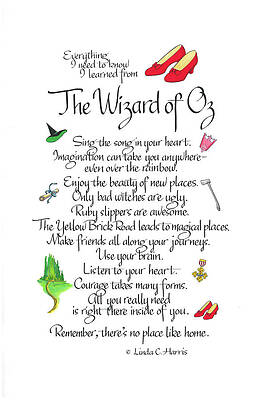 Everything
I need to know
I learned from
The Wizard of Oz
Sing the song in your heart.
Imagination can take you anywhere–
even over the rainbow.
Enjoy the beauty of new places.
Only bad witches are ugly.
Ruby slippers are awesome.
The Yellow Brick Road leads to magical places.
Make friends all along your journeys.
Use your brain.
Listen to your heart.
Courage takes many forms.
All you really need
is right there inside of you.
Remember, there's no place like home.
© Linda C. Harris